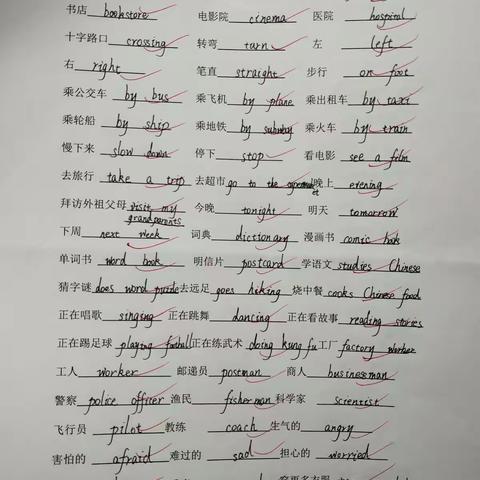 书店 bookstore 电影院 cinema 医院 hospital
十字路口 crossing 转弯 tarn 左 left
右 right 笔直 straight 步行 on foot
乘公交车 by bus 乘飞机 by plane 乘出租车 by taxi
乘轮船 by ship 乘地铁 by 乘火车 by train
慢下来 slow down 停下 stop 看电影 see a film
去旅行 take a trip 去超市 go to the 晚上 evening
拜访外祖父母 visit my grandparents 今晚 tonight 明天 tomorrow
下周 next week 词典 dictionary 漫画书 comic book
单词书 word book 明信片 postcard 学语文 studies Chinese
猜字谜 does word 去远足 goes hiking 烧中餐 cooks Chinese food
正在唱歌 singing 正在跳舞 dancing 正在看故事 reading stories
正在踢足球 playing football 正在练武术 doing kung fu 工厂 factory worker
工人 worker 邮递员 postman 商人 businessman
警察 police officer 渔民 fisherman 科学家 scientist
飞行员 pilot 教练 coach 生气的 angry
害怕的 afraid 难过的 sad 担心的 worried